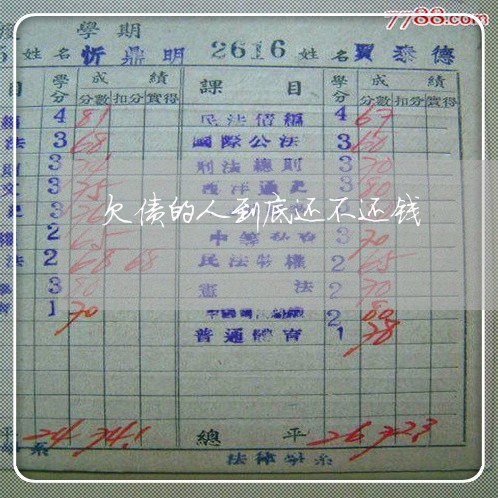 7788.com
學期
姓名 忻鼎明 2616 姓名 賈泰德
目 學分 成績 課目 學分 成績
分數 扣分 實得 分數 扣分 實得
4 81 民法債編 4 67
法 3 68 國際公法 3 60
3 刑法總則 3 70
3 75 西洋通史 3 80
欠债的人到底还不还钱
2 65 3 70
法 2 68 68 民法物權 2 65
3 80 憲法 2 70
1 70 2 80
普通體育 1 78
平 24 74.1 總平 26 72.3
系 法律學系